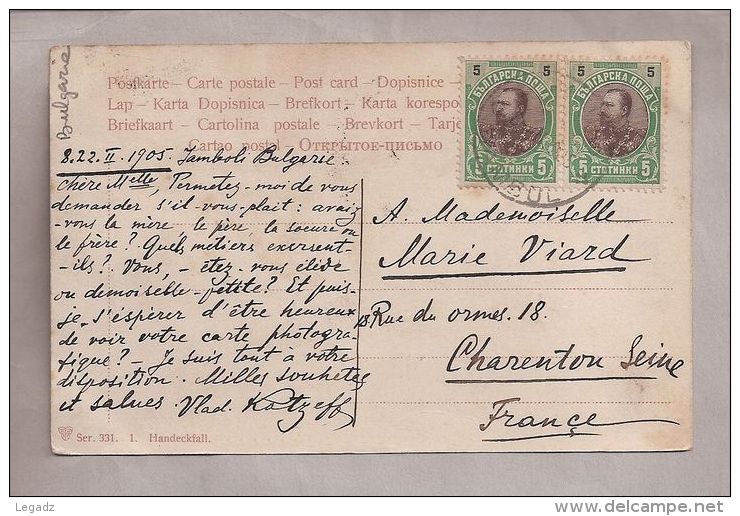 Bulgarie
Postkarte – Carte postale – Post card – Dopisnice –
Lap – Karta Dopisnica – Brefkort – Karta korespol
Briefkaart – Cartolina postale – Brevkort – Tarje
Cartao postal – Открытое-письмо
5 5
БЪЛГАРСКА ПОЩА
5 СТОТИНКИ 5
5 5
БЪЛГАРСКА ПОЩА
5 СТОТИНКИ 5
8.22.II.1905 Jamboli Bulgarie
chère Melle, Permetez-moi de vous
demander s'il-vous-plait: avaiz
-vous la mère, le père, la soeure ou
le frère? Quels métiers exersent-
-ils? Vous, – étez-vous élève
ou demoiselle-petite? Et puis-
je s'éspérer d'être heureux
de voir votre carte photogra-
fique? – Je suis tout a votre
disposition. Milles souhetes
et salues. Vlad. Katzeff
A Mademoiselle
Marie Viard
18 Rue du ormes. 18.
Charenton Seine
France
Ser. 331. 1. Handeckfall.
Legadz
delcampe.net